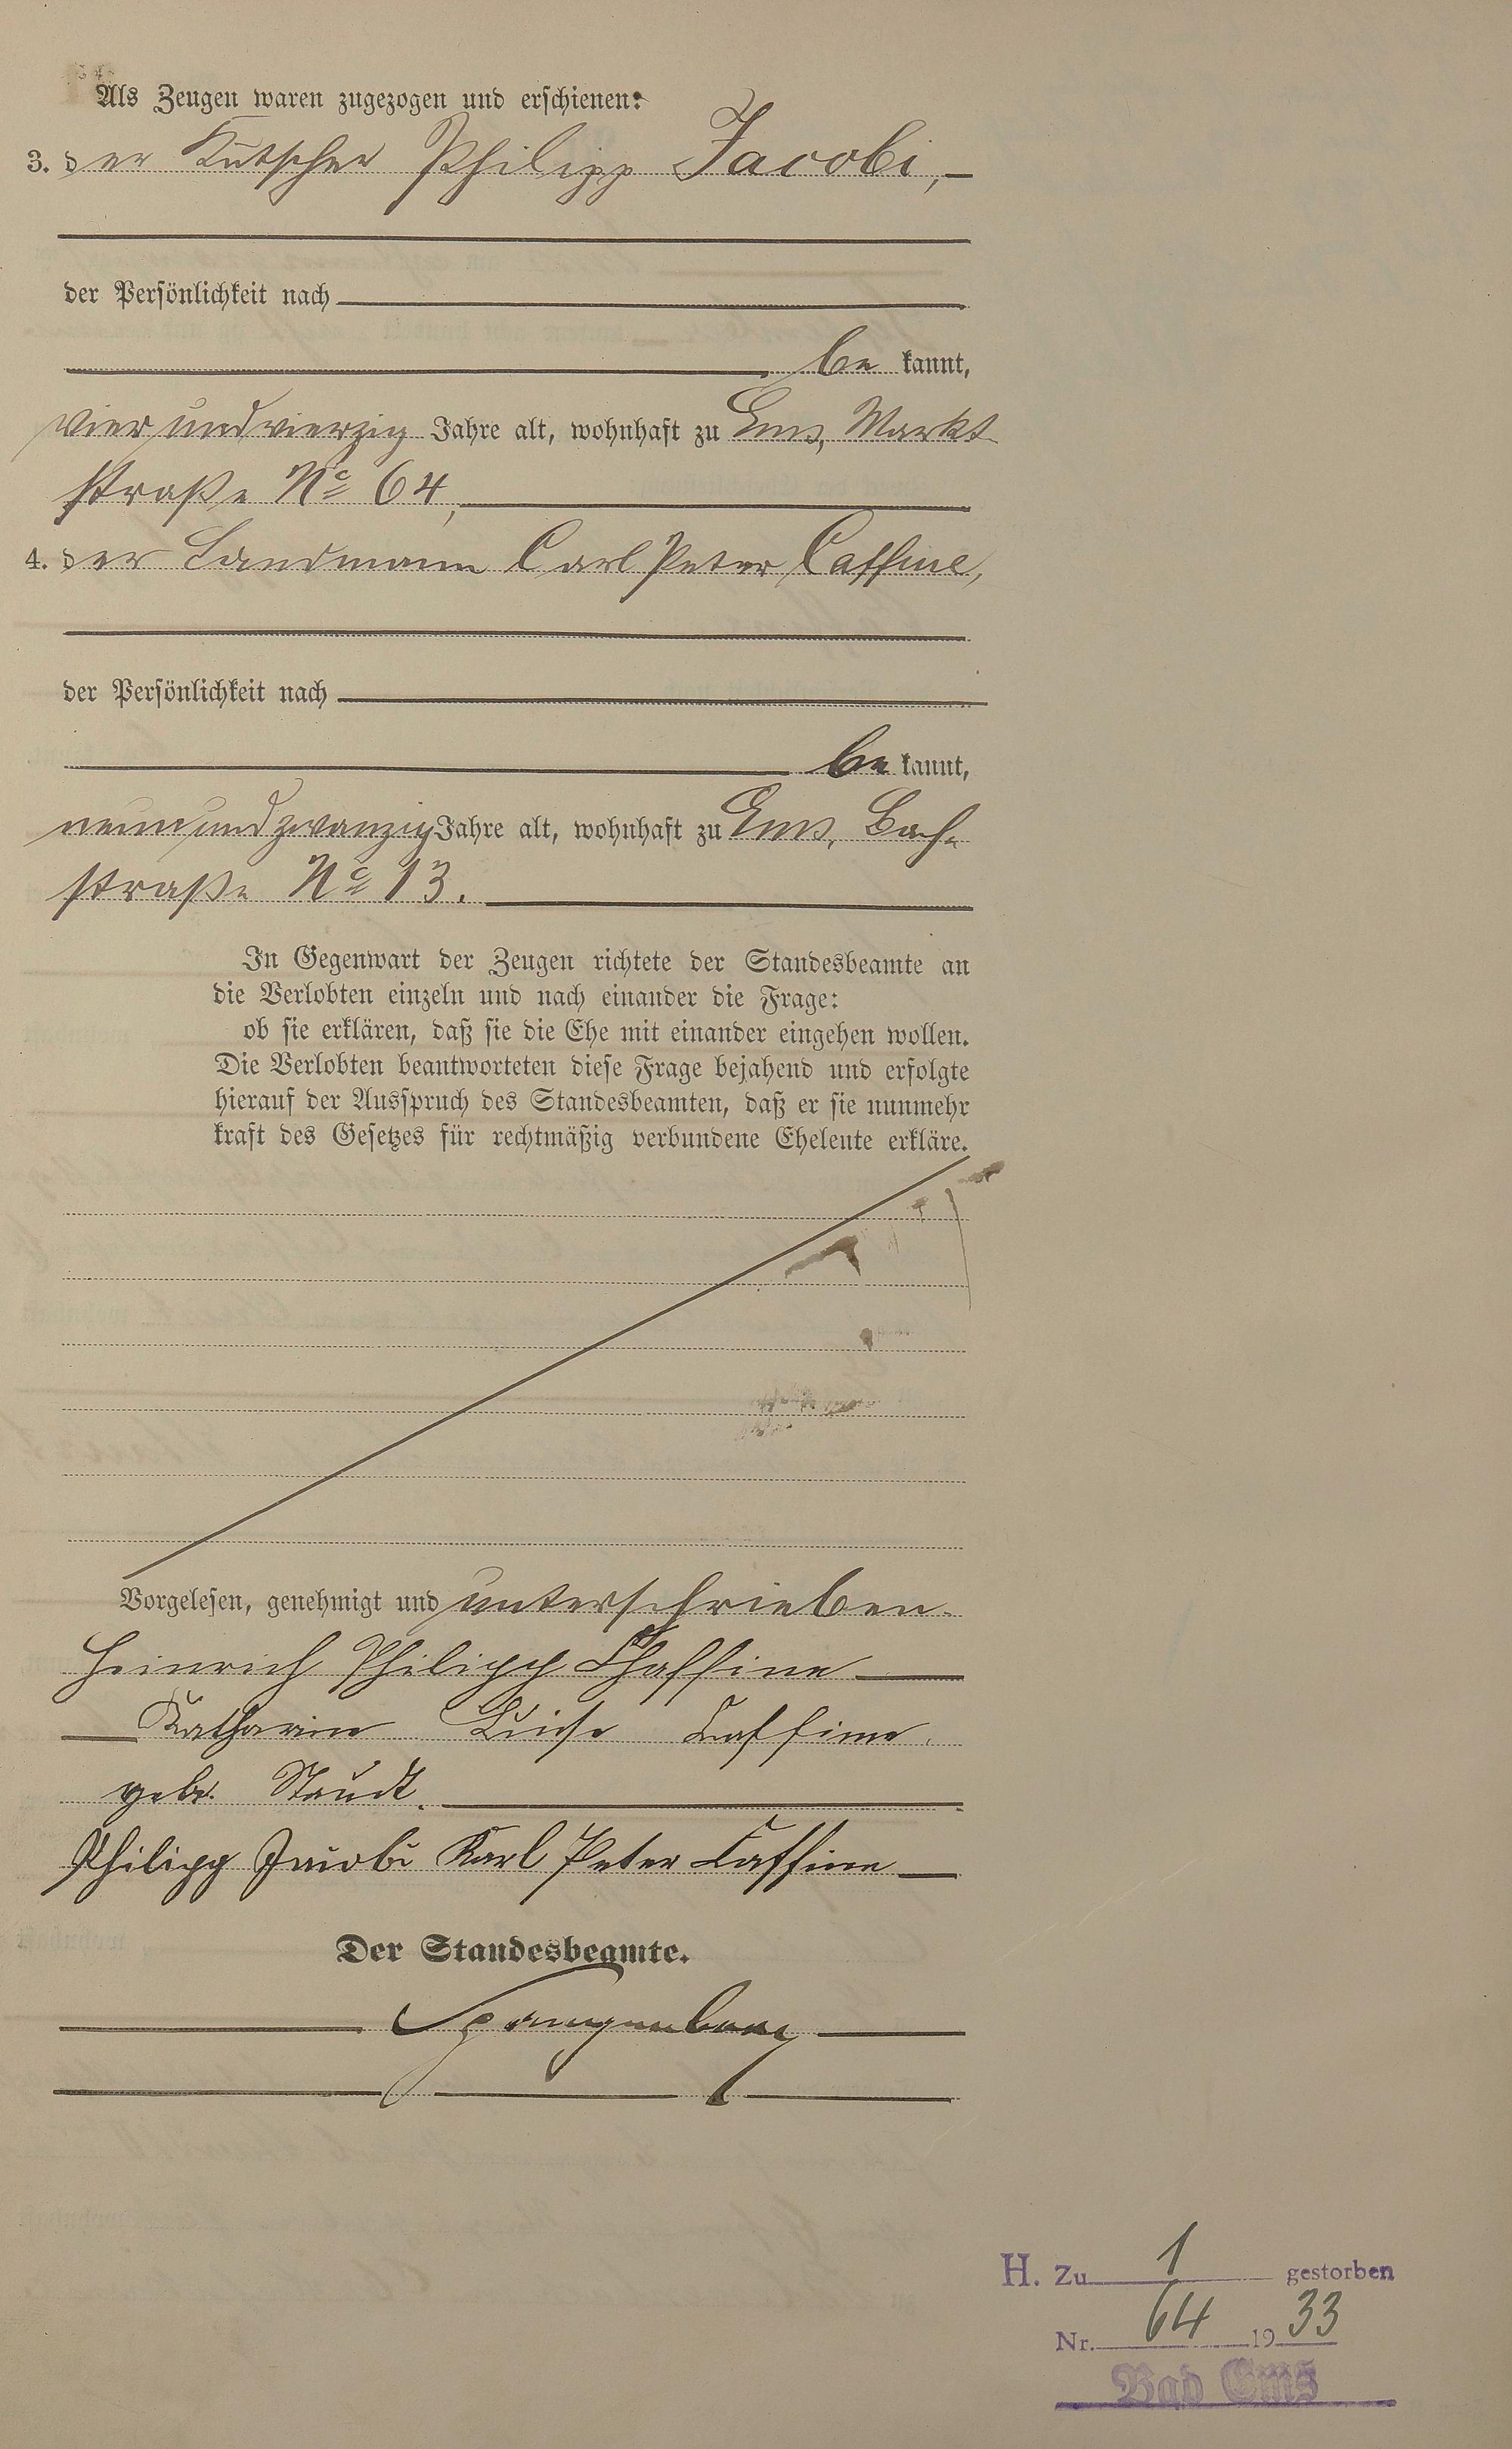 Als Zeugen waren zugezogen und erschienen:
3. der Kutscher Philipp Jacobi,
der Persönlichkeit nach
be kannt,
vier und vierzig Jahre alt, wohnhaft zu Ems, Markt-
straße No 64,
4. der Landmann Carl Peter Caffine,
der Persönlichkeit nach
be kannt,
neun und zwanzig Jahre alt, wohnhaft zu Ems, Bach-
straße No 13.
In Gegenwart der Zeugen richtete der Standesbeamte an
die Verlobten einzeln und nach einander die Frage:
ob sie erklären, daß sie die Ehe mit einander eingehen wollen.
Die Verlobten beantworteten diese Frage bejahend und erfolgte
hierauf der Ausspruch des Standesbeamten, daß er sie nunmehr
kraft des Gesetzes für rechtmäßig verbundene Eheleute erkläre.
Vorgelesen, genehmigt und unterschrieben.
Heinrich Philipp Chaffine
Katharine Luise Caffine
geb. Staudt.
Philipp Jacobi Karl Peter Caffine
Der Standesbeamte.
Spangenberg
H. Zu 1 gestorben
Nr. 64 1933
Bad Ems